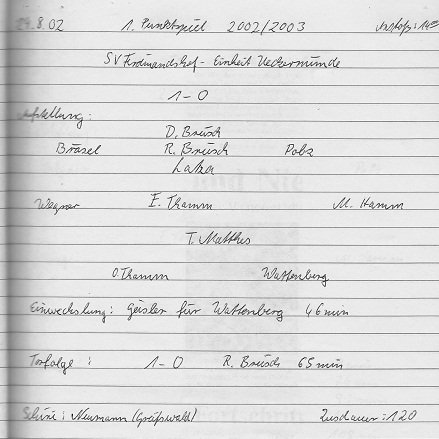 24.8.02 1. Punktspiel 2002/2003 Anstoß: 14⁰⁰
SV Ferdinandshof - Einheit Ueckermünde
1-0
Aufstellung:
D. Brüsch
Bräsel R. Brüsch Pobz
Laka
Wegner E. Thamm M. Hamm
T. Matthis
O. Thamm Wattenberg
Einwechslung: Geisler für Wattenberg 46 min
Torfolge: 1-0 R. Brüsch 65 min
Schiri: Neumann (Greifswald) Zuschauer: 120